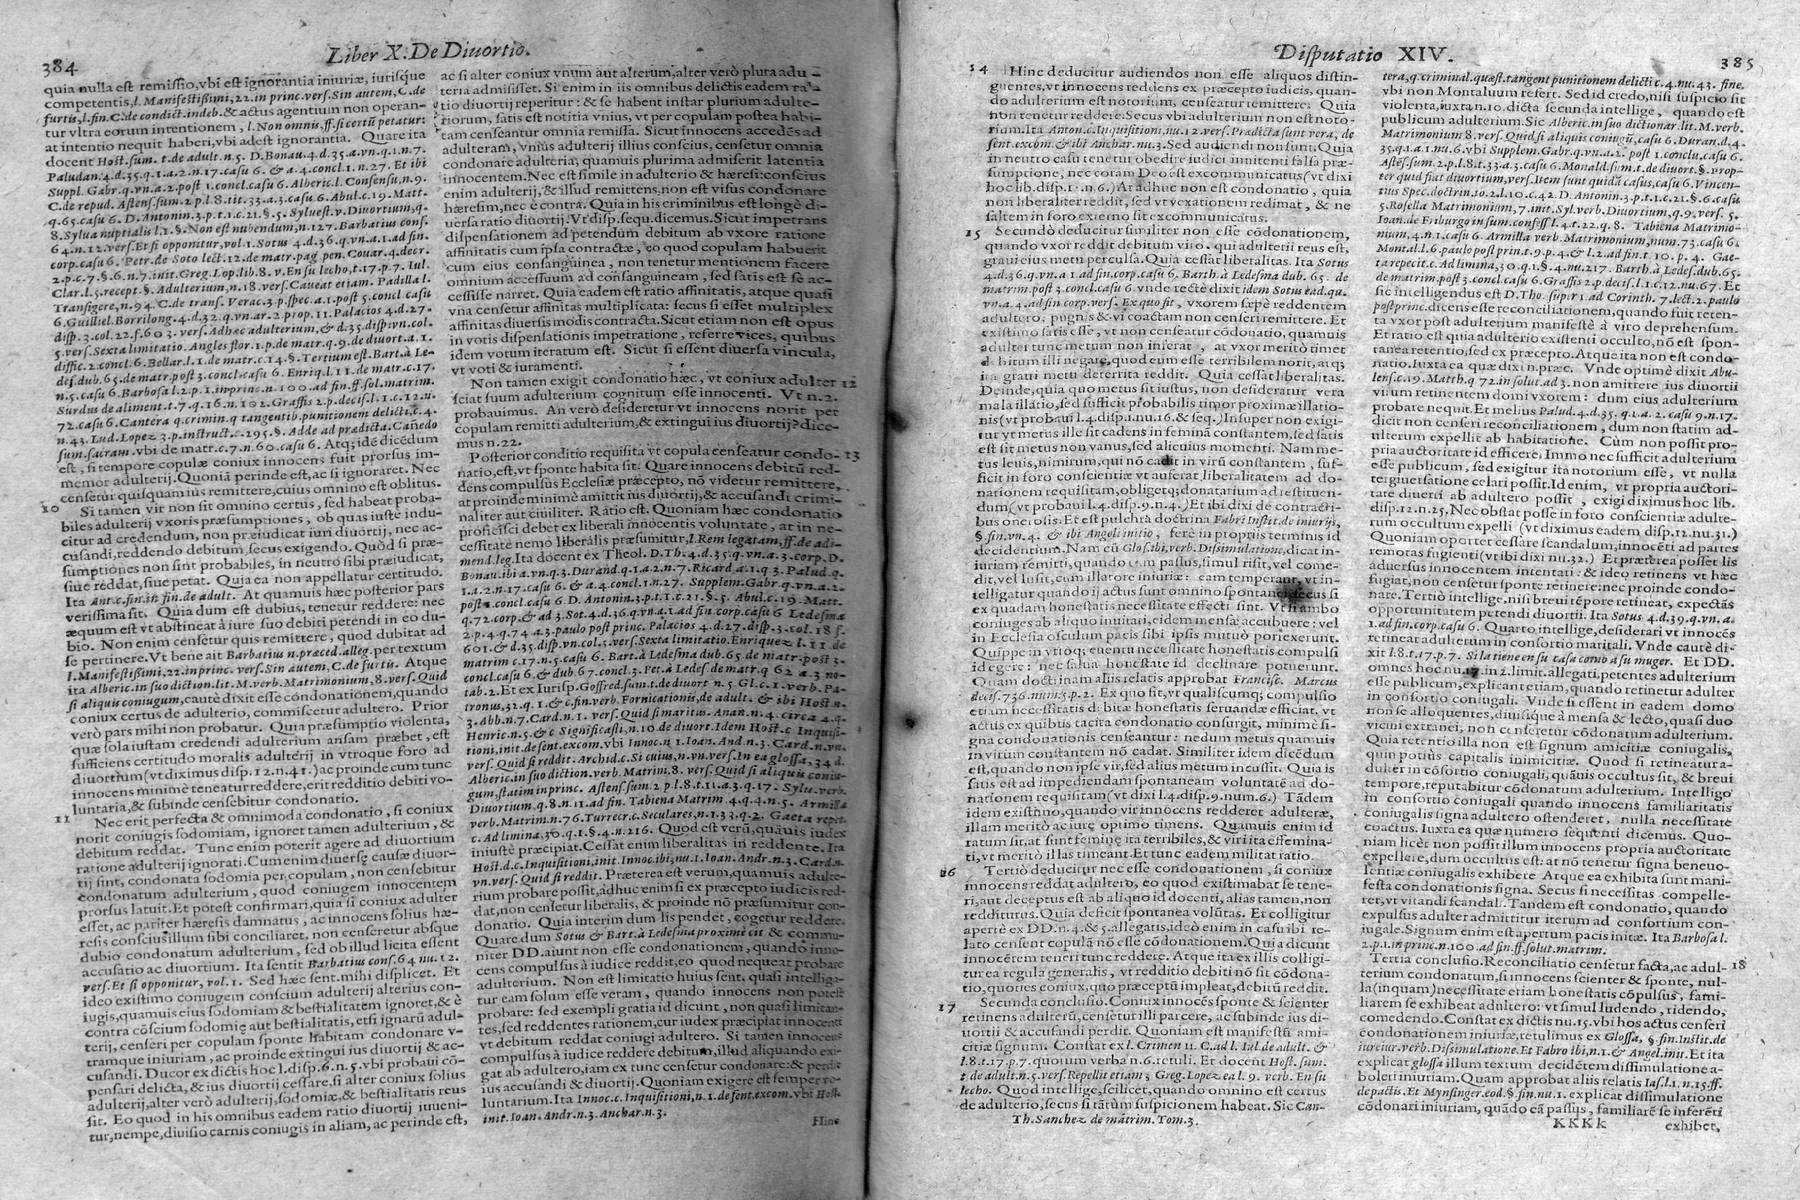 384
Liber X. De Diuortio.
quia nulla est remissio, vbi est ignorantia iniuriæ, iurisque
competentis, l. Manifestissimi, 22. in princ. vers. Sin autem, C. de
furtis, l. fin. C. de condict. indeb. & actus agentium non operan-
tur vltra eorum intentionem, l. Non omnis, ff. si certū petatur:
at intentio nequit haberi, vbi adest ignorantia. Quare ita
docent Host. sum. t. de adult. n. 5. D. Bonau. 4. d. 35. a. vn. q. 1. n. 7.
Paludan. 4. d. 35. q. 1. a. 2. n. 17. casu 6. & a. 4. concl. 1. n. 27. Et ibi
Suppl. Gabr. q. vn. a. 2. post 1. concl. casu 6. Alberic. l. Consensu, n. 9.
C. de repud. Astens. sum. 2. p. l. 8. tit. 33. a. 3. casu 6. Abul. c. 19. Matt.
q. 65. casu 6. D. Antonin. 3. p. t. 1. c. 21. §. 5. Syluest. v. Diuortium, q.
8. Sylua nuptialis l. 1. §. Non est nubendum, n. 127. Barbatius cons.
64. n. 12. vers. Et si opponitur, vol. 1. Sotus 4. d. 36. q. vn. a. 1. ad fin.
corp. casu 6. Petr. de Soto lect. 12. de matr. pag. pen. Couar. 4. decr.
2. p. c. 7. §. 6. n. 7. init. Greg. Lop. lib. 8. v. En su lecho, t. 17. p. 7. Iul.
Clar. l. 5. recept. §. Adulterium, n. 18. vers. Caueat etiam. Padilla l.
Transigere, n. 94. C. de trans. Verac. 3. p. spec. a. 1. post 5. concl. casu
6. Guilliel. Borrilong. 4. d. 32. q. vn. ar. 2. prop. 11. Palacios 4. d. 27.
disp. 3. col. 22. f. 603. vers. Adhæc adulterium, & d. 35. disp. vn. col.
5. vers. Sexta limitatio. Angles flor. 1. p. de matr. q. 9. de diuort. a. 1.
diffic. 2. concl. 6. Bellar. l. 1. de matr. c. 14. §. Tertium est. Bart. à Le-
des. dub. 65. de matr. post 3. concl. casu 6. Enriq. l. 11. de matr. c. 17.
n. 5. casu 6. Barbosa l. 2. p. 1. in princ. n. 100. ad fin. ff. sol. matrim.
Surdus de aliment. t. 7. q. 16. n. 102. Graffis 2. p. decis. l. 1. c. 12. n.
72. casu 6. Cantera q. crimin. q. tangentib. punitionem delicti, c. 4.
n. 43. Lud. Lopez 3. p. instruct. c. 295. §. Adde ad prædicta. Cañedo
sum. sacram. vbi de matr. c. 7. n. 60. casu 6. Atq; idē dicēdum
est, si tempore copulæ coniux innocens fuit prorsus im-
memor adulterij. Quoniā perinde est, ac si ignoraret. Nec
censetur quisquam ius remittere, cuius omnino est oblitus.
10 Si tamen vir non sit omnino certus, sed habeat proba-
biles adulterij vxoris præsumptiones, ob quas iuste indu-
citur ad credendum, non præiudicat iuri diuortij, nec ac-
cusandi, reddendo debitum, secus exigendo. Quòd si præ-
sumptiones non sint probabiles, in neutro sibi præiudicat,
siue reddat, siue petat. Quia ea non appellatur certitudo.
Ita Ant. c. fin. in fin. de adult. At quamuis hæc posterior pars
verissima sit. Quia dum est dubius, tenetur reddere: nec
æquum est vt abstineat à iure suo debiti petendi in eo du-
bio. Non enim censetur quis remittere, quod dubitat ad
se pertinere. Vt bene ait Barbatius n. præced. alleg. per textum
l. Manifestissimi, 22. in princ. vers. Sin autem, C. de furtis. Atque
ita Alberic. in suo diction. lit. M. verb. Matrimonium, 8. vers. Quid
si aliquis coniugum, cautè dixit esse cōdonationem, quando
coniux certus de adulterio, commiscetur adultero. Prior
verò pars mihi non probatur. Quia præsumptio violenta,
quæ sola iustam credendi adulterium ansam præbet, est
sufficiens certitudo moralis adulterij in vtroque foro ad
diuortium (vt diximus disp. 12. n. 41.) ac proinde cum tunc
innocens minimè teneatur reddere, erit redditio debiti vo-
luntaria, & subinde censebitur condonatio.
11 Nec erit perfecta & omnimoda condonatio, si coniux
norit coniugis sodomiam, ignoret tamen adulterium, &
debitum reddat. Tunc enim poterit agere ad diuortium
ratione adulterij ignorati. Cum enim diuersę causæ diuor-
tij sint, condonata sodomia per copulam, non censebitur
condonatum adulterium, quod coniugem innocentem
prorsus latuit. Et potest confirmari, quia si coniux adulter
esset, ac pariter hæresis damnatus, ac innocens solius hæ-
resis conscius illum sibi conciliaret, non censeretur absque
dubio condonatum adulterium, sed ob illud licita essent
accusatio ac diuortium. Ita sentit Barbatius cons. 64 nu. 12.
vers. Et si opponitur, vol. 1. Sed hæc sent. mihi displicet. Et
ideo existimo coniugem conscium adulterij alterius con-
iugis, quamuis eius sodomiam & bestialitatem ignoret, & è
contra cōscium sodomię aut bestialitatis, etsi ignarū adul-
terij, censeri per copulam sponte habitam condonare v-
tramque iniuriam, ac proinde extingui ius diuortij & ac-
cusandi. Ducor ex dictis hoc l. disp. 6. n. 5. vbi probaui cō-
pensari delicta, & ius diuortij cessare, si alter coniux solius
adulterij, alter verò adulterij, sodomiæ, & bestialitatis reus
sit. Eo quod in his omnibus eadem ratio diuortij inueni-
tur, nempe, diuisio carnis coniugis in aliam, ac perinde est,
ac si alter coniux vnum aut alterum, alter verò plura adu-
teria admisisset. Si enim in iis omnibus delictis eadem ra-
tio diuortij reperitur: & se habent instar plurium adulte-
riorum, satis est notitia vnius, vt per copulam postea habi-
tam censeantur omnia remissa. Sicut innocens accedēs ad
adulteram, vnius adulterij illius conscius, censetur omnia
condonare adulteria, quamuis plurima admiserit latentia
innocentem. Nec est simile in adulterio & hæresi: conscius
enim adulterij, & illud remittens, non est visus condonare
hæresim, nec è contra. Quia in his criminibus est longè di-
uersa ratio diuortij. Vt disp. sequ. dicemus. Sicut impetrans
dispensationem ad petendum debitum ab vxore ratione
affinitatis cum ipsa contractæ, eo quod copulam habuerit
cum eius consanguinea, non tenetur mentionem facere
omnium accessuum ad consanguineam, sed satis est se ac-
cessisse narret. Quia eadem est ratio affinitatis, atque quasi
vna censetur affinitas multiplicata: secus si esset multiplex
affinitas diuersis modis contracta. Sicut etiam non est opus
in votis dispensationis impetratione, referre vices, quibus
idem votum iteratum est. Sicut si essent diuersa vincula,
vt voti & iuramenti.
Non tamen exigit condonatio hæc, vt coniux adulter 12
sciat suum adulterium cognitum esse innocenti. Vt n. 2.
probauimus. An verò desideretur vt innocens norit per
copulam remitti adulterium, & extingui ius diuortij? dice-
mus n. 22.
Posterior conditio requisita vt copula censeatur condo- 13
natio, est, vt sponte habita sit. Quare innocens debitū red-
dens compulsus Ecclesiæ præcepto, nō videtur remittere,
at proinde minimè amittit ius diuortij, & accusandi crimi-
naliter aut ciuiliter. Ratio est. Quoniam hæc condonatio
proficisci debet ex liberali innocentis voluntate, at in ne-
cessitate nemo liberalis præsumitur, l. Rem legatam, ff. de adi-
mend. leg. Ita docent ex Theol. D. Th. 4. d. 35. q. vn. a. 3. corp. D.
Bonau. ibi a. vn. q. 3. Durand. q. 1. a. 2. n. 7. Ricard. a. 1. q. 3. Palud. q.
1. a. 2. n. 17. casu 6. & a. 4. concl. 1. n. 27. Supplem. Gabr. q. vn. a.
post 1. concl. casu 6. D. Antonin. 3. p. t. 1. c. 21. §. 5. Abul. c. 19. Matt.
q. 72. corp. & ad 3. Sot. 4. d. 36. q. vn. a. 1. ad fin. corp. casu 6. Ledesma
2. p. 4. q. 74. a 3. paulo post princ. Palacios 4. d. 27. disp. 3. col. 18 f.
601. & d. 35. disp. vn. col. 5. vers. Sexta limitatio. Enriquez l. 11. de
matrim. c. 17. n. 5. casu 6. Bart. à Ledesma dub. 65. de matr. post 3.
concl. casu 6. & dub. 67. concl. 3. Pet. à Ledes. de matr. q. 62 a. 3 no-
tab. 2. Et ex Iurisp. Goffred. sum. t. de diuort. n. 5. Gl. c. 1. verb. Pa-
tronus, 32. q. 1. & c. fin. verb. Fornicationis, de adult. & ibi Host. n.
3. Abb. n. 7. Card. n. 1. vers. Quid si maritus. Anan. n. 4. circa 4. q.
Henric. n. 5. & c. Significasti, n. 10. de diuort. Idem Host. c. Inquisi-
tioni, init. de sent. excom. vbi Innoc. n. 1. Ioan. And. n. 3. Card. n. vn.
vers. Quid si reddit. Archid. c. Si cuius, n. vn. vers. In ea glossa, 34 d.
Alberic. in suo diction. verb. Matrim. 8. vers. Quid si aliquis coniu-
gum, statim in princ. Astens. sum. 2. p. l. 8. t. 11. a. 3. q. 17. Sylu. verb.
Diuortium, q. 8. n. 11. ad fin. Tabiena Matrim. 4. q. 4. n. 5. Armilla
verb. Matrim. n. 76. Turrecr. c. Seculares, n. 1. 33. q. 2. Gaeta repet.
c. Ad limina, 30. q. 1. §. 4. n. 216. Quod est verū, quāuis iudex
iniustè præcipiat. Cessat enim liberalitas in reddente. Ita
Host. d. c. Inquisitioni, init. Innoc. ibi, nu. 1. Ioan. Andr. n. 3. Card. n.
vn. vers. Quid si reddit. Præterea est verum, quamuis adulte-
rium probare possit, adhuc enim si ex præcepto iudicis red-
dat, non censetur liberalis, & proinde nō præsumitur con-
donatio. Quia interim dum lis pendet, cogetur reddere.
Quare dum Sotus & Bart. à Ledesma proximè cit. & commu-
niter DD. aiunt non esse condonationem, quando inno-
cens compulsus à iudice reddit, eo quod nequeat probare
adulterium. Non est limitatio huius sent. quasi intelliga-
tur eam solum esse veram, quando innocens non potest
probare: sed exempli gratia id dicunt, non quasi limitan-
tes, sed reddentes rationem, cur iudex præcipiat innocenti
vt debitum reddat coniugi adultero. Si tamen innocens
compulsus à iudice reddere debitum, illud aliquando exi-
gat ab adultero, iam ex tunc censetur condonare: & perdi
ius accusandi & diuortij. Quoniam exigere est semper vo-
luntarium. Ita Innoc. c. Inquisitioni, n. 1. de sent. excom. vbi Host.
init. Ioan. Andr. n. 3. Anchar. n. 3.
Hinc
Disputatio XIV.
385
14 Hinc deducitur audiendos non esse aliquos distin-
guentes, vt innocens reddens ex præcepto iudicis, quan-
do adulterium est notorium, censeatur remittere: Quia
non tenetur reddere. Secus vbi adulterium non est noto-
rium. Ita Anton. c. Inquisitioni, nu. 12. vers. Prædicta sunt vera, de
sent. excom. & ibi Anchar. nu. 3. Sed audiendi non sunt. Quia
in neutro casu tenetur obedire iudici innitenti falsa præ-
sumptione, nec coram Deo est excommunicatus (vt dixi
hoc lib. disp. n. 6.) At adhuc non est condonatio, quia
non liberaliter reddit, sed vt vexationem redimat, & ne
saltem in foro externo sit excommunicatus.
15 Secundò deducitur similiter non esse cōdonationem,
quando vxor reddit debitum viro, qui adulterij reus est,
graui eius metu perculsa. Quia cessat liberalitas. Ita Sotus
4. d. 36. q. vn. a. 1 ad fin. corp. casu 6. Barth. à Ledesma dub. 65. de
matrim. post 3. concl. casu 6. vnde rectè dixit idem Sotus ead. qu.
vn. a. 4. ad fin. corp. vers. Ex quo fit, vxorem sæpè reddentem
adultero, pugnis & vi coactam non censeri remittere. Et
existimo satis esse, vt non censeatur cōdonatio, quamuis
adulter tunc metum non inferat, at vxor meritò timet
debitum illi negare, quod eum esse terribilem norit, atq;
ita graui metu deterrita reddit. Quia cessat liberalitas.
Deinde, quia quo metus sit iustus, non desideratur vera
mala illatio, sed sufficit probabilis timor proximæ illatio-
nis (vt probaui l. 4. disp. 1. nu. 16. & seq.) Insuper non exigi-
tur vt metus ille sit cadens in feminā constantem, sed satis
est sit metus non vanus, sed alicuius momenti. Nam me-
tus leuis, nimirum, qui nō cadit in virū constantem, suf-
ficit in foro conscientiæ vt auferat liberalitatem ad do-
nationem requisitam, obligetq; donatarium ad restituen-
dum (vt probaui l. 4. disp. 9. n. 4.) Et ibi dixi de contracti-
bus onerosis. Et est pulchra doctrina Fabri Instit. de iniurijs,
§. fin. vn. 4. & ibi Angeli initio, ferè in propriis terminis id
decidentium. Nam cū Glos. ibi, verb. Dissimulatione, dicat in-
iuriam remitti, quando eam passus, simul risit, vel come-
dit, vel lusit, cum illatore iniuriæ: eam temperant, vt in-
telligatur quando ij actus sunt omnino spontanei, secus si
ex quadam honestatis necessitate effecti sint. Vt si ambo
coniuges ab aliquo inuitari, eidem mensæ accubuere: vel
in Ecclesia osculum pacis sibi ipsis mutuò porrexerunt.
Quippe in vtroq; euentu necessitate honestatis compulsi
id egere: nec salua honestate id declinare potuerunt.
Quam doctrinam aliis relatis approbat Francisc. Marcus
decis. 736. num. 5. p. 2. Ex quo fit, vt qualiscumq; compulsio
etiam necessitatis debitæ honestatis seruandæ efficiat, vt
actus ex quibus tacita condonatio consurgit, minimè si-
gna condonationis censeantur: nedum metus quamuis
in virum constantem nō cadat. Similiter idem dicēdum
est, quando non ipse vir, sed alius metum incussit. Quia is
satis est ad impediendam spontaneam voluntatē ad do-
nationem requisitam (vt dixi l. 4. disp. 9. num. 6.) Tādem
idem existimo, quando vir innocens redderet adulteræ,
illam meritò ac iure optimo timens. Quamuis enim id
ratum sit, at sunt feminę ita terribiles, & viri ita effemina-
ti, vt meritò illas timeant. Et tunc eadem militat ratio.
16 Tertiò deducitur nec esse condonationem, si coniux
innocens reddat adultero, eo quod existimabat se tene-
ri, aut deceptus est ab aliquo id docenti, alias tamen, non
redditurus. Quia deficit spontanea volūtas. Et colligitur
apertè ex DD. n. 4. & 5. allegatis, ideò enim in casu ibi re-
lato censent copulā nō esse cōdonationem. Quia dicunt
innocētem teneri tunc reddere. Atque ita ex illis colligi-
tur ea regula generalis, vt redditio debiti nō sit cōdona-
tio, quoties coniux, quo præceptū impleat, debitū reddit.
17 Secunda conclusio. Coniux innocēs sponte & scienter
retinens adulterū, censetur illi parcere, ac subinde ius di-
uortij & accusandi perdit. Quoniam est manifestū ami-
citiæ signum. Constat ex l. Crimen 11. C. ad l. Iul. de adult. &
l. 8. t. 17. p. 7. quorum verba n. 6. retuli. Et docent Host. sum.
t. de adult. n. 5. vers. Repellit etiam, Greg. Lopez ea l. 9. verb. En su
lecho. Quod intellige, scilicet, quando omnino est certus
de adulterio, secus si tātùm suspicionem habeat. Sic Can-
Th. Sanchez de matrim. Tom. 3.
tera, q. criminal. quæst. tangent punitionem delicti c. 4. nu. 43. fine.
vbi non Montaluum refert. Sed id credo, nisi suspicio sit
violenta, iuxta n. 10. dicta secunda intellige, quando est
publicum adulterium. Sic Alberic. in suo dictionar. lit. M. verb.
Matrimonium 8. vers. Quid si aliquis coniugū, casu 6. Duran. d. 4.
35. q. 1. a. 2. n. 7. vbi Supplem. Gabr. q. vn. a. 2. post 1. conclu. casu 6.
Astes. sum. 2. p. l. 8. t. 33. a. 3. casu 6. Monald. sum. t. de diuort. §. prop-
ter quid fiat diuortium, vers. Item sunt quidā casus, casu 6. Vincen-
tius Spec. doctrin. 10. 2. l. 10. c. 42. D. Antonin. 3. p. t. 1. c. 21. §. 6. casu
5. Rosella Matrimonium, 7. init. Syl. verb. Diuortium, q. 9. vers. 5.
Ioan. de Friburgo in sum. confess. l. 4. t. 22. q. 8. Tabiena Matrimo-
nium, 4. n. 1. casu 6. Armilla verb. Matrimonium, num. 73. casu 6.
Montal. l. 6. paulo post prin. t. 9. p. 4. & l. 2. ad fin. t. 10. p. 4. Gae-
ta repecit. c. Ad limina, 30. q. 1. §. 4. nu. 217. Barth. à Ledes. dub. 65.
de matrim. post 3. concl. casu 6. Graffis 2. p. decis. l. 1. c. 12. nu. 67. Et
sic intelligendus est D. Tho. sup. 1 ad Corinth. 7. lect. 2. paulo
post princ. dicens esse reconciliationem, quando fuit reten-
ta vxor post adulterium manifestè à viro deprehensum.
Et ratio est quia adulterio existenti occulto, nō est spon-
tanea retentio, sed ex præcepto. Atque ita non est condo-
natio. Iuxta ea quæ dixi n. præc. Vnde optimè dixit Abu-
lens. c. 19. Matth. q. 72. in solut. ad 3. non amittere ius diuortij
virum retinentem domi vxorem: dum eius adulterium
probare nequit. Et melius Palud. 4. d. 35. q. 1. a. 2. casu 9. n. 17.
dicit non censeri reconciliationem, dum non statim ad-
ulterum expellit ab habitatione. Cùm non possit pro-
pria auctoritate id efficere. Immo nec sufficit adulterium
esse publicum, sed exigitur ita notorium esse, vt nulla
tergiuersatione celari possit. Id enim, vt propria auctori-
tate diuerti ab adultero possit, exigi diximus hoc lib.
disp. 12. n. 25. Nec obstat posse in foro conscientiæ adulte-
rum occultum expelli (vt diximus eadem disp. 12. nu. 31.)
Quoniam oportet cessare scandalum, innocēti ad partes
remotas fugienti (vt ibi dixi nu. 32.) Et præterea posset lis
aduersus innocentem intentari: & ideo retinens vt hæc
fugiat, non censetur sponte retinere: nec proinde condo-
nare. Tertiò intellige, nisi breui tēpore retineat, expectās
opportunitatem petendi diuortij. Ita Sotus 4. d. 39. q. vn. a.
1. ad fin. corp. casu 6. Quarto intellige, desiderari vt innocēs
retineat adulterum in consortio maritali. Vnde cautè di-
xit l. 8. t. 17. p. 7. Si la tiene en su casa como a su muger. Et DD.
omnes hoc nu. 17. in 2. limit. allegati, petentes adulterium
esse publicum, explicant etiam, quando retinetur adulter
in consortio coniugali. Vnde si essent in eadem domo
non se alloquentes, diuisique à mensa & lecto, quasi duo
vicini extranei, non censeretur cōdonatum adulterium.
Quia retentio illa non est signum amicitiæ coniugalis,
quin potiùs capitalis inimicitiæ. Quod si retineatur a-
dulter in cōsortio coniugali, quāuis occultus sit, & breui
tempore, reputabitur cōdonatum adulterium. Intelligo
in consortio coniugali quando innocens familiaritatis
coniugalis signa adultero ostenderet, nulla necessitate
coactus. Iuxta ea quæ numero sequenti dicemus. Quo-
niam licèt non possit illum innocens propria auctoritate
expellere, dum occultus est: at nō tenetur signa beneuo-
lentiæ coniugalis exhibere. Atque ea exhibita sunt mani-
festa condonationis signa. Secus si necessitas compelle-
ret, vt vitandi scandali. Tandem est condonatio, quando
expulsus adulter admittitur iterum ad consortium con-
iugale. Signum enim est apertum pacis initæ. Ita Barbosa l.
2. p. 1. in princ. n. 100. ad fin. ff. solut. matrim.
Tertia conclusio. Reconciliatio censetur facta, ac adul- 18
terium condonatum, si innocens scienter & sponte, nul-
la (inquam) necessitate etiam honestatis cōpulsus, fami-
liarem se exhibeat adultero: vt simul ludendo, ridendo,
comedendo. Constat ex dictis nu. 15. vbi hos actus censeri
condonationem iniuriæ, retulimus ex Glossa, §. fin. Instit. de
iniur. verb. Dissimulatione. Et Fabro ibi, n. 1. & Angel. init. Et ita
explicat glossa illum textum decidētem dissimulatione a-
boleri iniuriam. Quam approbat aliis relatis Ias. l. 1. n. 15. ff.
de pactis. Et Mynsinger. eod. §. fin. nu. 1. explicat dissimulatione
cōdonari iniuriam, quādo eā passus, familiarē se inferēti
KKKk
exhibet,